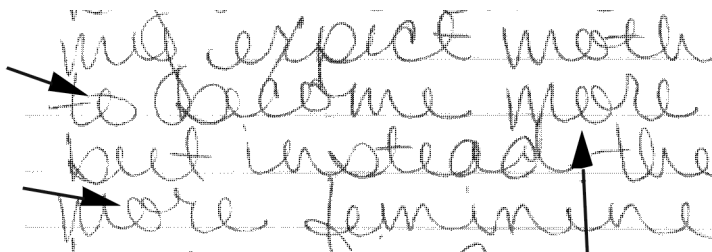 my expect moth
to become more
but instead the
more feminine